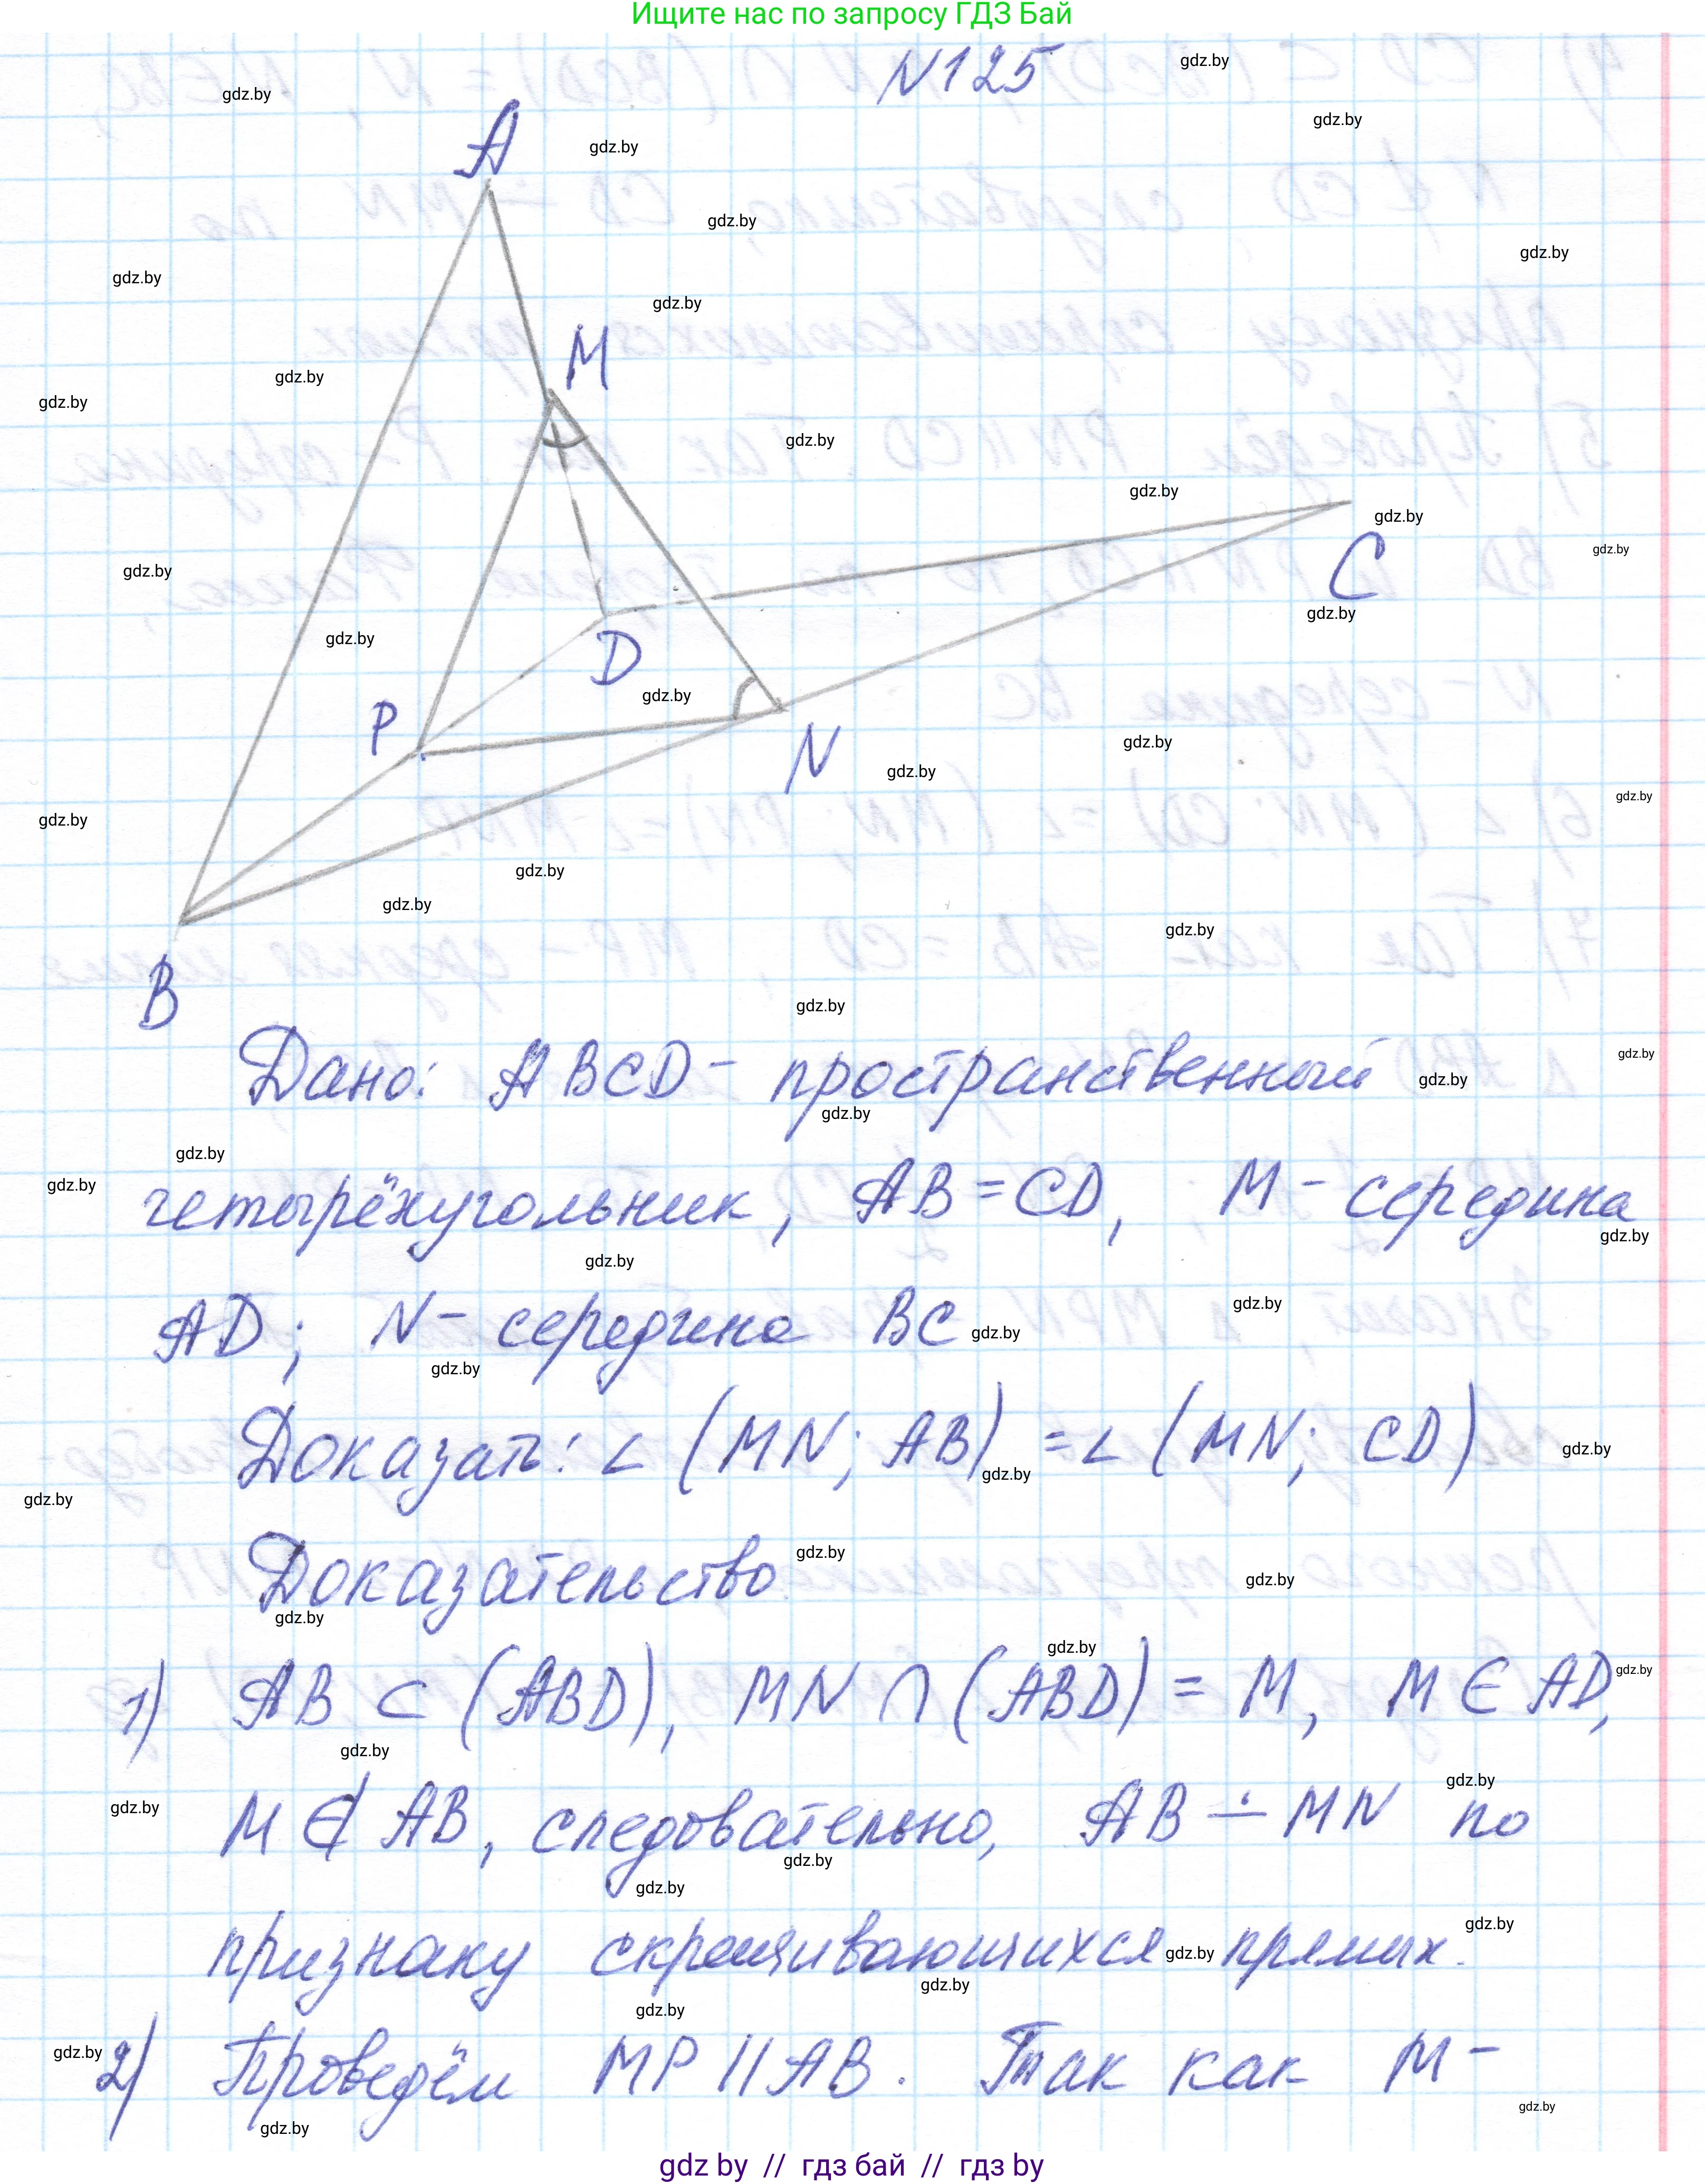 Ищите нас по запросу ГДЗ Бай
N125
A
M
C
D
P
N
B
Дано: ABCD - пространственный
четырёхугольник, AB = CD, M - середина
AD; N - середина BC
Доказать: ∠ (MN; AB) = ∠ (MN; CD)
Доказательство.
1) AB ⊂ (ABD), MN ∩ (ABD) = M, M ∈ AD,
M ∉ AB, следовательно, AB ∸ MN по
признаку скрещивающихся прямых.
2) Проведём MP || AB. Так как M -
gdz by // гдз бай // гдз by